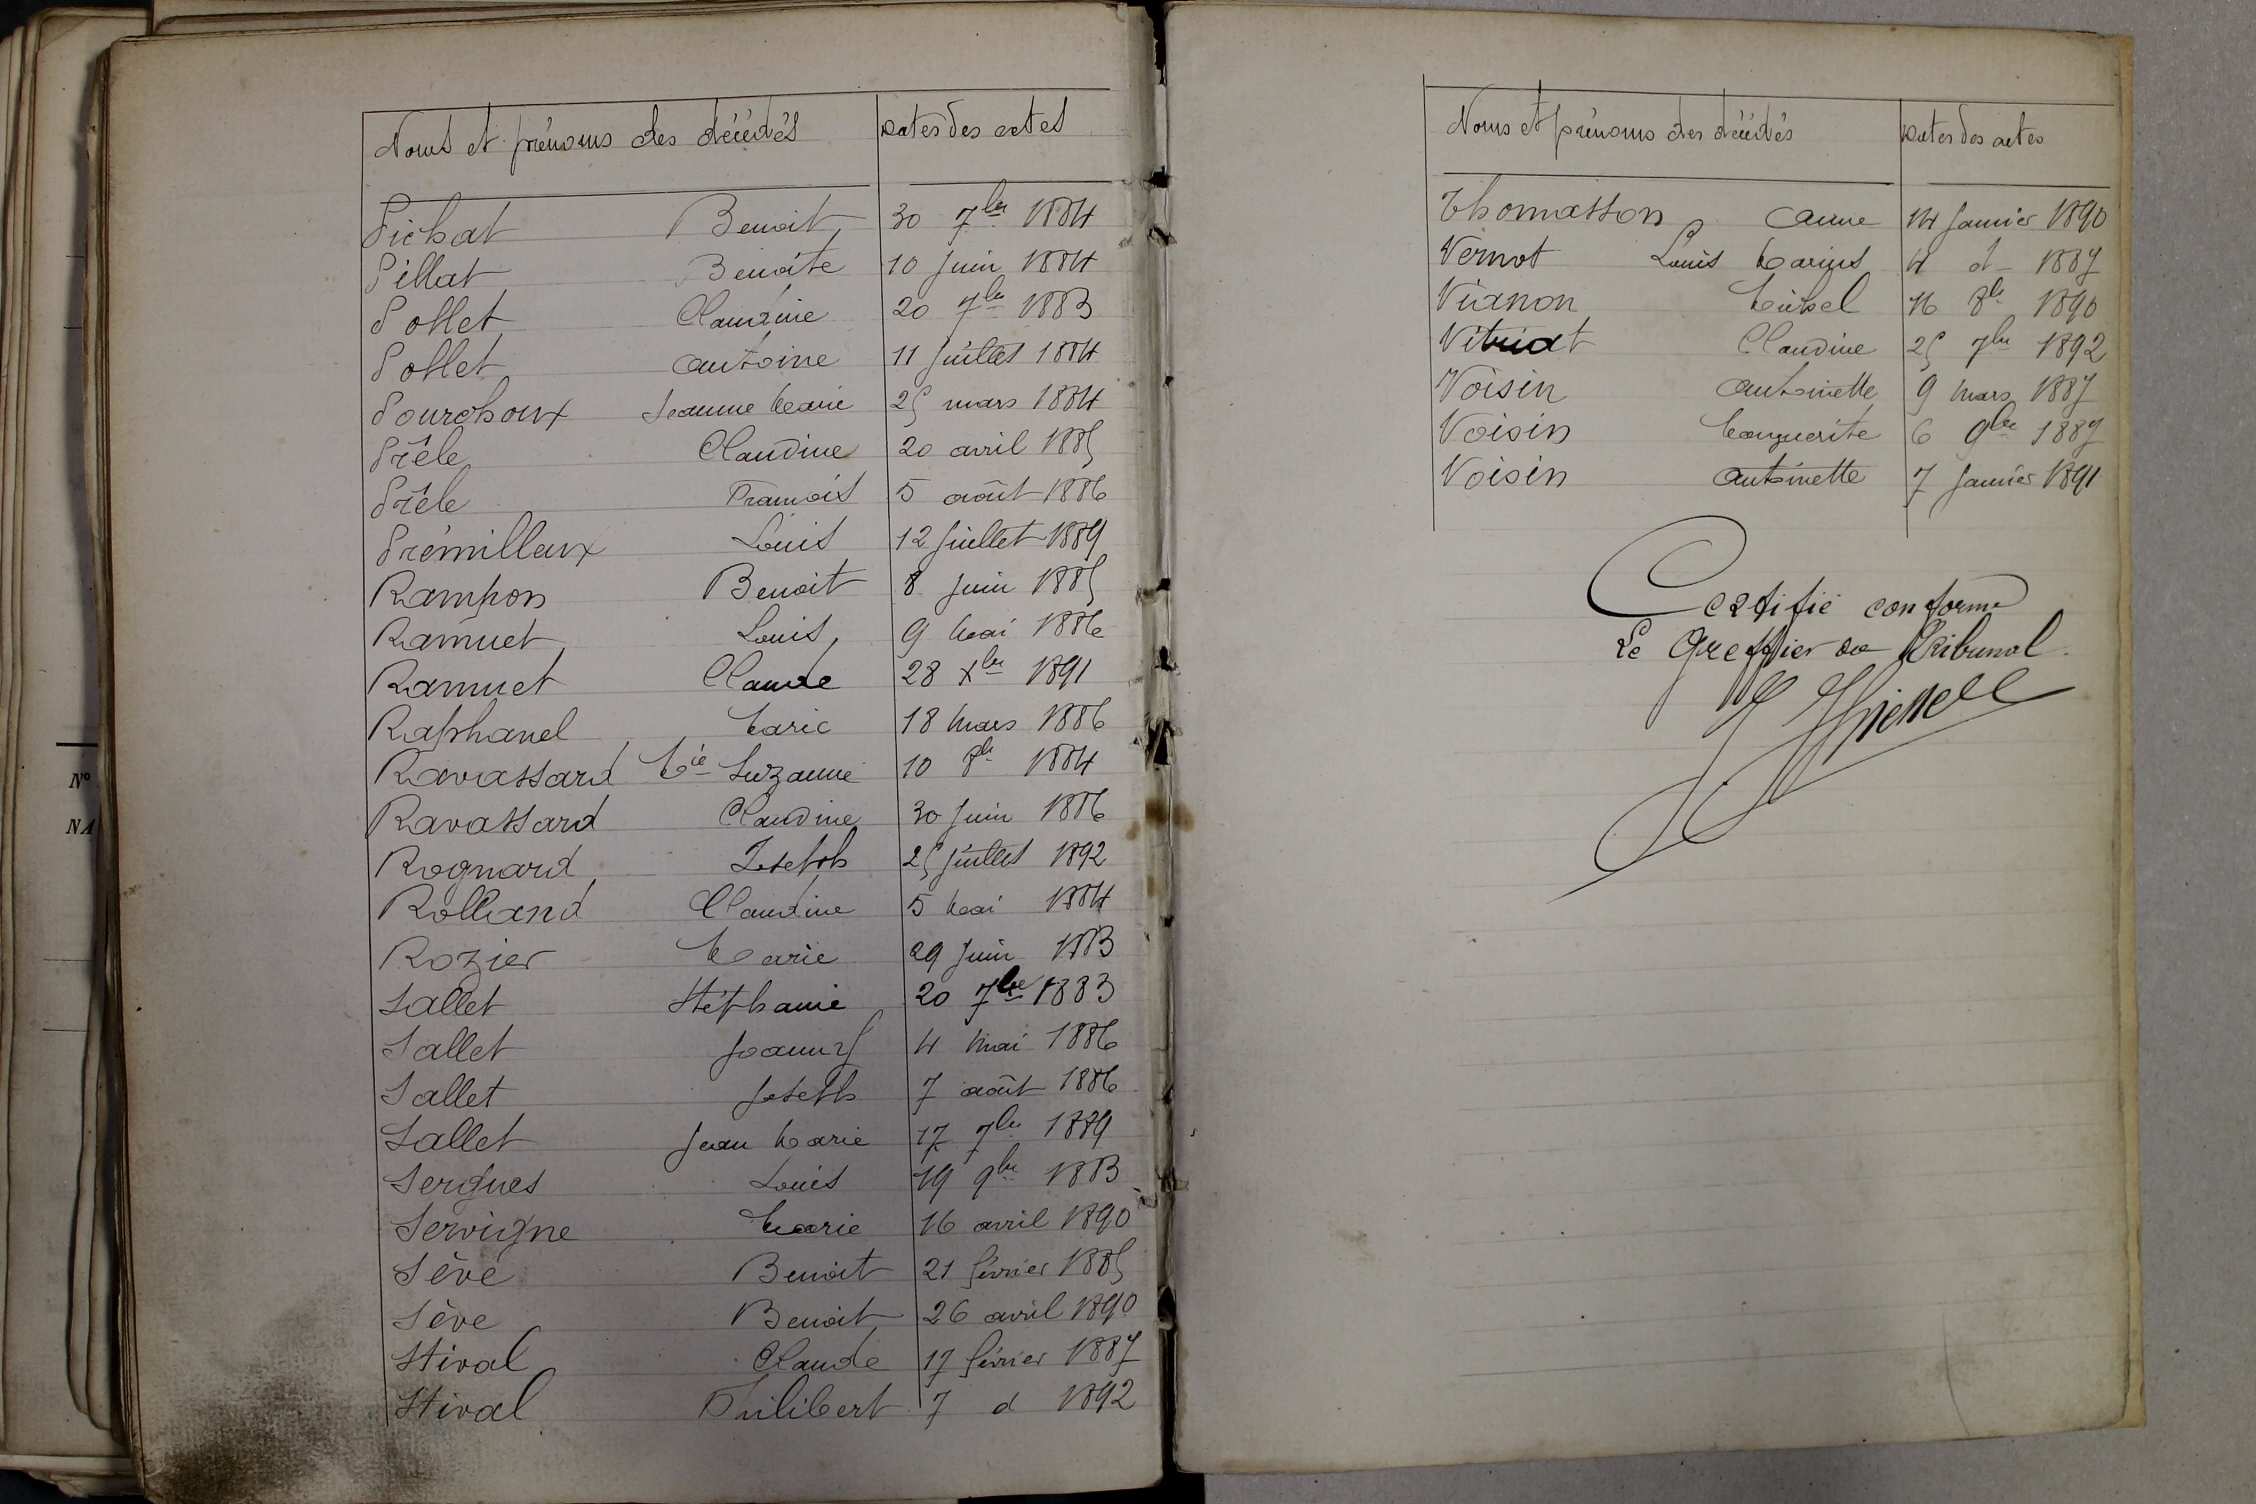 Noms et prénoms des décédés Dates des actes
Pichat Benoit 30 7bre 1884
Pillat Benoîte 10 Juin 1884
Pollet Claudine 20 7bre 1883
Pollet Antoine 11 Juillet 1884
Pourchoux Jeanne Marie 25 mars 1884
Prêle Claudine 20 avril 1885
Prêle François 5 août 1886
Prémillieux Louis 12 Juillet 1889
Rampon Benoit 8 Juin 1885
Ramuet Louis 9 Mai 1886
Ramuet Claude 28 Xbre 1891
Raphanel Marie 18 Mars 1886
Ravassard Mie Suzanne 10 8bre 1884
Ravassard Claudine 30 Juin 1886
Rognard Joseph 25 Juillet 1892
Rolland Claudine 5 Mai 1884
Rozier Marie 29 Juin 1883
Sallet Stéphanie 20 7bre 1883
Sallet Joanny 4 Mai 1886
Sallet Joseph 7 août 1886
Sallet Jean Marie 17 7bre 1889
Sergues Louis 19 9bre 1883
Servigne Marie 16 avril 1890
Sève Benoit 21 février 1885
Sève Benoit 26 avril 1890
Stival Claude 17 février 1887
Stival Philibert 7 d 1892
N°
NA
Noms et prénoms des décédés Dates des actes
Thomasson Anne 14 Janvier 1890
Vernot Louis Marius 4 d 1887
Vianon Michel 16 8bre 1890
Vitriat Claudine 25 7bre 1892
Voisin Antoinette 9 Mars 1887
Voisin Marguerite 6 9bre 1887
Voisin Antoinette 7 Janvier 1891
Certifié conforme
Le Greffier du Tribunal